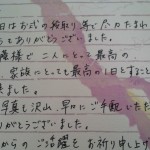 日はお式の段取り等でお力たまわ
もありがとうございました。
様で 二人にとって最高の
家族にとっても最高の1日とすること
ました。
写真も沢山、早々にご手配いただ
がとうございました。
からのご活躍をお祈り申し上げ